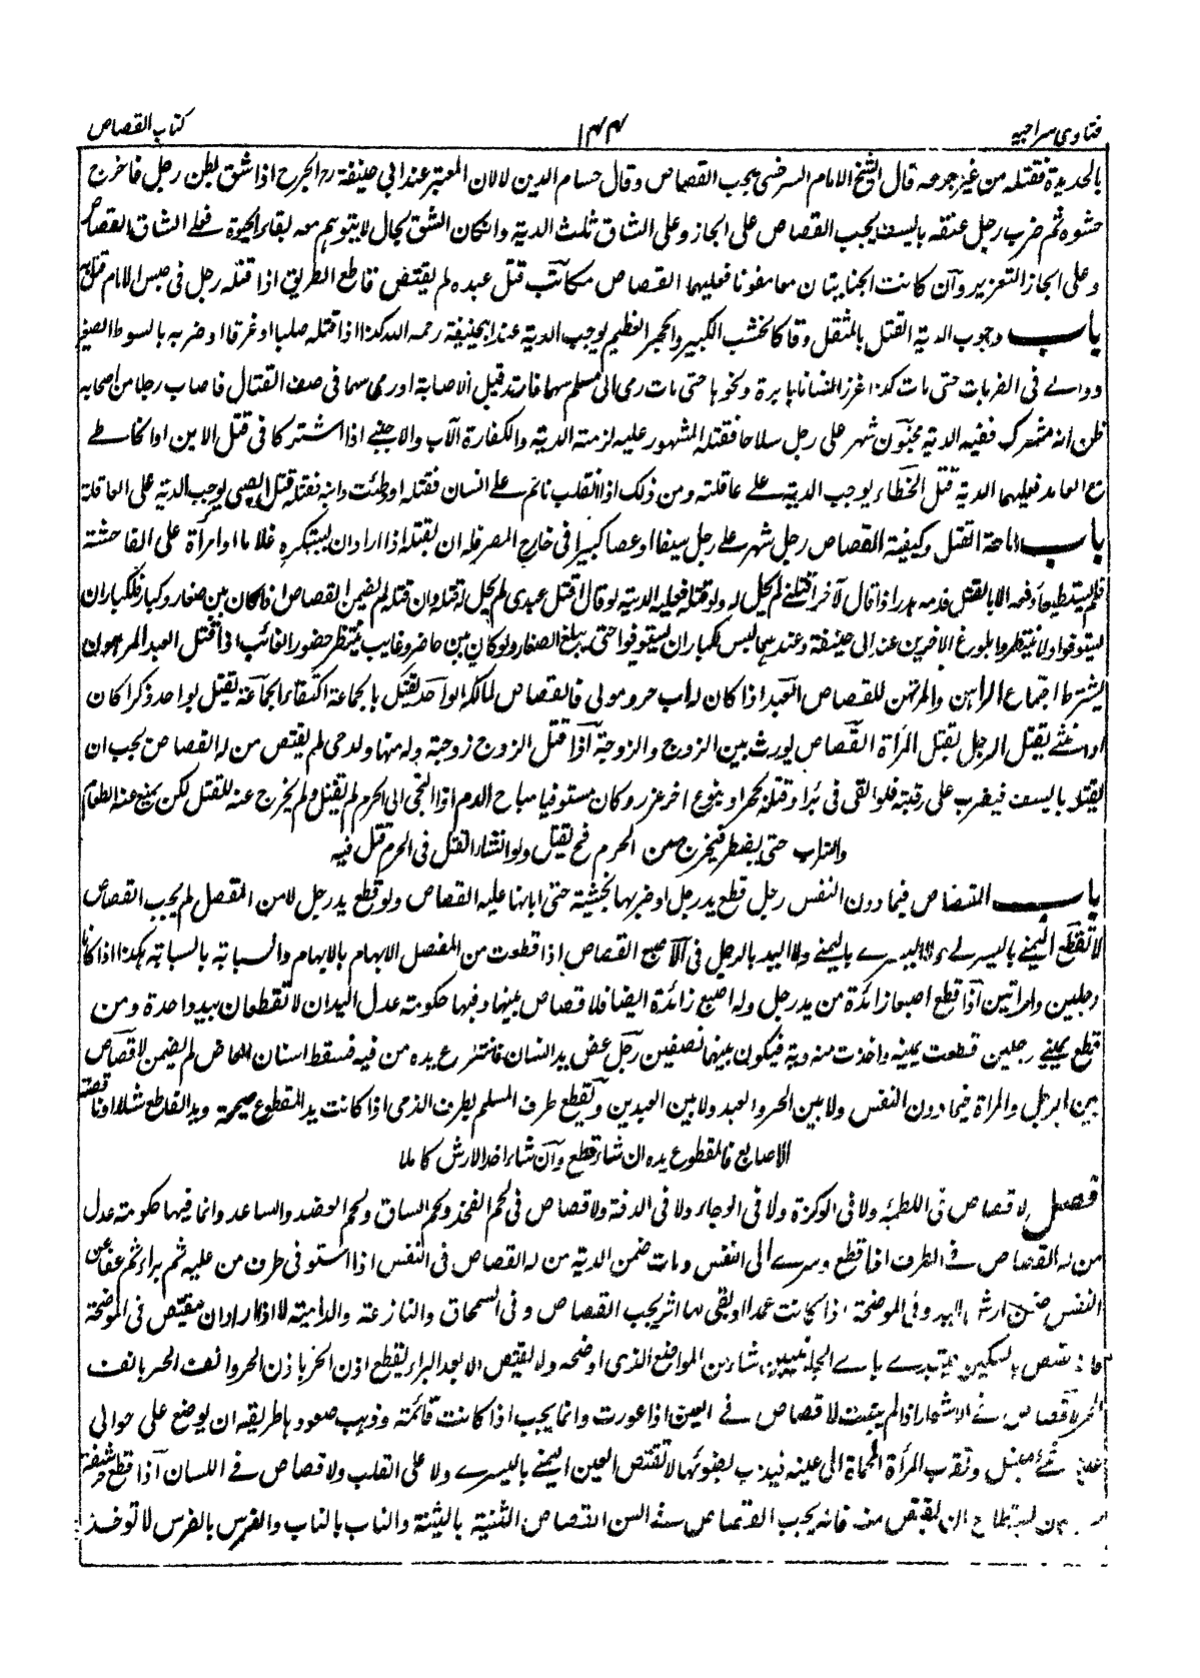 فتاوی سراجیه ۱۴۴ کتاب القصاص
بالحدیدة فقتله من غیر جرحه قال الشیخ الامام السرخسی یجب القصاص وقال حسام الدین لا لان المعتبر عند ابی حنیفة رح الجرح اذا شق بطن رجل فاخرج
حشوه ثم ضرب رجل عنقه بالسیف یجب القصاص علی الجاز وعلی الشاق ثلث الدیة وان کان الشق بحال لا یتوهم معه بقاء الحیوة فعلی الشاق القصاص
وعلی الجاز التعزیر وآن کانت الجنایتان معا فعلیهما القصاص مکاتب قتل عبده لم یقتص قاطع الطریق اذا قتله رجل فی حبس الامام
باب وجوب الدیة القتل بالمثقل کالخشب الکبیر والحجر العظیم یوجب الدیة عند ابیحنیفة رحمه الله کذا اذا قتله صلبا او غرقا او ضربه بالسوط الصغیر
ووالے فی الضربات حتی مات کذا اغرز انسانا بابرة ونحوها حتی مات رمی الی مسلم سهما فارتد قبل الاصابة او رمی سهما فی صف القتال فاصاب رجلا من اصحابه
ظن انه مشرک ففیه الدیة مجنون شهر علی رجل سلاحا فقتله المشهور علیه لزمته الدیة والکفارة الآب والاجنبے اذا اشترکا فی قتل الابن او الخاطے
مع العامد فعلیهما الدیة قتل الخطاء یوجب الدیة علے عاقلته ومن ذلک اذا انقلب نائم علے انسان فقتله او وطئت دابته فقتله قتل الصبی یوجب الدیة علی العاقلة
باب اباحة القتل وکیفیة القصاص رجل شهر علے رجل سیفا او عصا کبیرا فی خارج المصر فله ان یقتله اذا اراد ان یستکره غلاما او امرأة علی الفاحشة
فلم یستطیعا دفعه الا بالقتل فدمه هدر اذا قال لآخر اقتلنے لم یحل له ولو قتله فعلیه الدیة لو قال اقتل عبدی لم یحل له قتله وان قتله لم یضمن القصاص اذا کان بین صغار وکبار فللکبار ان
یستوفوا ولا ینتظروا بلوغ الآخرین عند ابی حنیفة وعندهما لیس للکبار ان یستوفوا حتی یبلغ الصغار ولو کان بین حاضر وغایب ینتظر حضور الغائب اذا قتل العبد المرهون
یشترط اجتماع الراهن والمرتهن للقصاص العبد اذا کان له اب حر ومولی فالقصاص لمالکه الواحد یقتل بالجماعة اکتفاء الجماعة تقتل بواحد ذکرا کان
او انثے یقتل الرجل بقتل المرأة القصاص یورث بین الزوج والزوجة آذا قتل الزوج زوجته وله منها ولد حی لم یقتص من له القصاص یجب ان
یقتله بالسیف فیضرب علی رقبته فلو القی فی بئر او قتله بحجر او بنوع اخر عزر وکان مستوفیا مباح الدم اذا التجی الی الحرم لم یقتل ولم یخرج عنه للقتل لکن یمنع عنه الطعام
والشراب حتی یضطر فیخرج من الحرم فح یقتل ولو انشاء القتل فی الحرم قتل فیه
باب القصاص فیما دون النفس رجل قطع ید رجل او ضربها بخشبة حتی ابانها علیه القصاص ولو قطع ید رجل لا من المفصل لم یجب القصاص
لا تقطع الیمنے بالیسرے ولا الیسرے بالیمنے ولا الید بالرجل فی الآصبع القصاص اذا قطعت من المفصل الابهام بالابهام والسبابة بالسبابة هکذا اذا کانا
رجلین وامراتین آذا قطع اصبعا زائدة من ید رجل وله اصبع زائدة ایضا فلا قصاص بینهما وفیها حکومة عدل الیدان لا تقطعان بید واحدة ومن
قطع یمنے رجلین قطعت یمینه واخذت منه دیة فیکون بینهما نصفین رجل عض ید انسان فانتزع یده من فیه فسقط اسنان العاض لم یضمن لا قصاص
بین الرجل والمراة فیما دون النفس ولا بین الحر والعبد ولا بین العبدین وتقطع طرف المسلم بطرف الذمی اذا کانت ید المقطوع صحیحة وید القاطع شلاء او ناقصة
الاصابع فالمقطوع یده ان شاء قطع وآن شاء اخذ الارش کاملا
فصل لا قصاص فی اللطمة ولا فی الوکزة ولا فی الوجاء ولا فی الدقة ولا قصاص فی لحم الفخذ ولحم الساق ولحم العضد والساعد وانما فیها حکومة عدل
من له القصاص فے الطرف اذا قطع وسرے الی النفس ومات ضمن الدیة من له القصاص فی النفس اذا استوفی طرف من علیه ثم براء ثم عفا عن
النفس ضمن ارش الید وفی الموضحة اذا کانت عمدا او یبقی لها اثر یجب القصاص وفی السمحاق والنازعة والدامیة لا اذا اراد ان یقتص فی الموضحة
فانه یقتص بالسکین یبتدے بای الجانبین شاء من المواضع الذی اوضحه ولا یقتص الا بعد البراء یقطع اذن الحر باذن الحر وانف الحر بانف
الحر لا قصاص فے الاشعار اذا لم ینبت لا قصاص فے العین اذا عورت وانما یجب اذا کانت قائمة وذهب ضوءها طریقه ان یوضع علی حوالی
عینه شئ مبتل وتقرب المرأة المحماة الی عینه فیذهب ضوئها لا تقتص العین الیمنے بالیسرے ولا علی القلب ولا قصاص فے اللسان آذا قطع حشفة
ان یقتص منه فانه یجب القصاص فے السن القصاص الثنیة بالثنیة والناب بالناب والضرس بالضرس لا توخذ